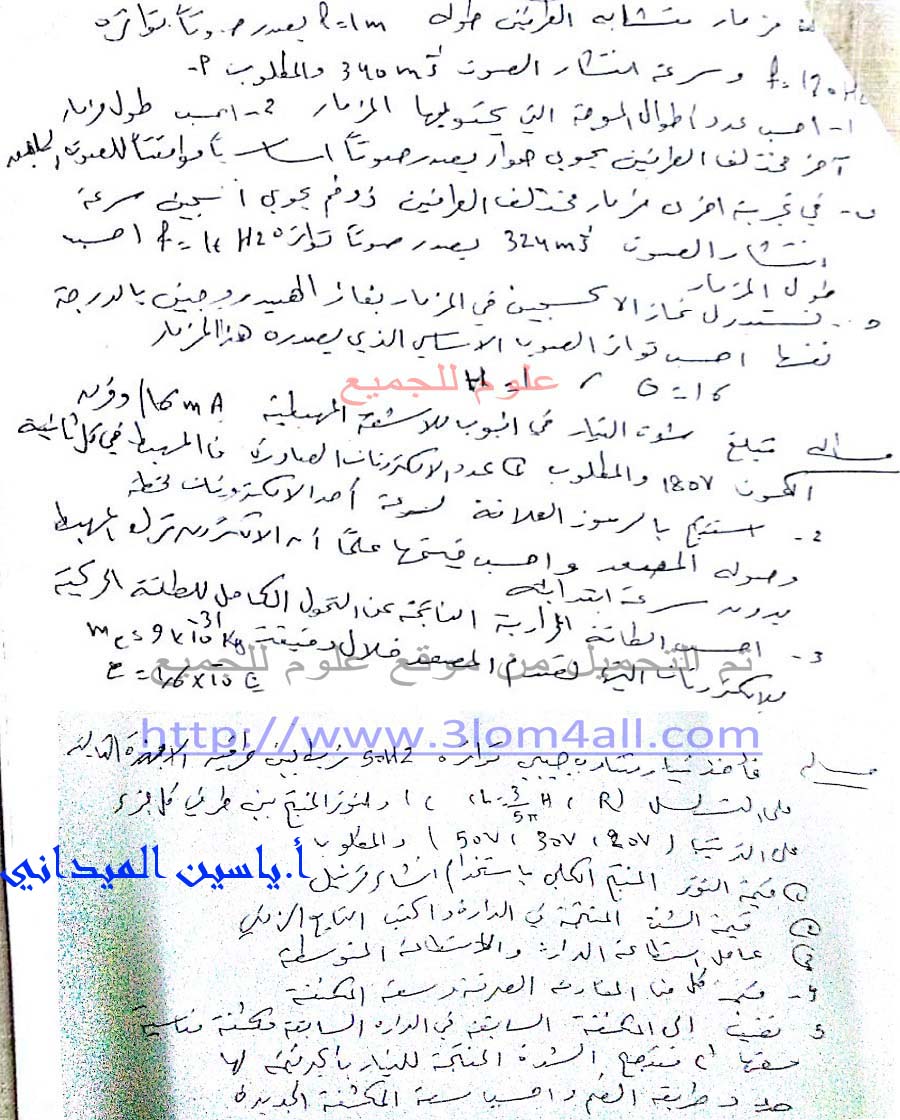 مزمار متشابه الطرفين طوله l=1m يصدر صوتاً تواتره
f = 170 Hz وسرعة انتشار الصوت 340 m s⁻¹ والمطلوب P-
1- احسب عدد أطوال الموجة التي يحتويها المزمار 2- احسب طول مزمار
آخر مختلف الطرفين يحوي هواء يصدر صوتاً أساسياً مواقتاً للصوت السابق
ب- في تجربة اخرى مزمار مختلف الطرفين ذو فم يحوي أكسجين سرعة
انتشار الصوت 324 m s⁻¹ يصدر صوتاً تواتره f = Hz احسب
طول المزمار
نستبدل غاز الاكسجين في المزمار بغاز الهيدروجين بالدرجة
نفسها احسب تواتر الصوت الاساسي الذي يصدره هذا المزمار
H = 1 ، O = 16
علوم للجميع
مسألة تبلغ شدة التيار في انبوب للاشعة المهبطية 16 mA وفرق
الكمون 180V والمطلوب 1) عدد الالكترونات الصادرة عن المهبط في كل ثانية
2- استنتج بالرموز العلاقة لسرعة أحد الالكترونات لحظة
وصوله المصعد واحسب قيمتها علماً أن الالكترون ترك المهبط
بدون سرعة ابتدائية
3- احسب الطاقة الحرارية الناتجة عن التحول الكامل للطاقة الحركية
للالكترونات التي تصدم المصعد خلال دقيقة me = 9 x 10⁻³¹ kg
e = 1,6 x 10 C
تم التحميل من موقع علوم للجميع
http://www.3lom4all.com
مسألة مأخذ تيار متناوب جيبي تواتره 50Hz نربط بين طرفيه الاجهزة التالية
على التسلسل (R ، L = 3/5π H ، C) والتوتر المنتج بين طرفي كل جزء
على الترتيب (50V ، 30V ، 90V) والمطلوب
أ.ياسين الميداني
1) قيمة التوتر المنتج الكلي باستخدام انشاء فرينل
2) قيمة الشدة المنتجة في الدارة واكتب التابع الزمني
3) عامل استطاعة الدارة والاستطاعة المتوسطة
4- قيمة كل من المقاومة الصرفة وسعة المكثفة
5 نضيف الى المكثفة السابقة في الدارة السابقة مكثفة مناسبة
سعتها C' فتصبح الشدة المنتجة للتيار بأكبر قيمة لها
حدد طريقة الضم واحسب سعة المكثفة الجديدة